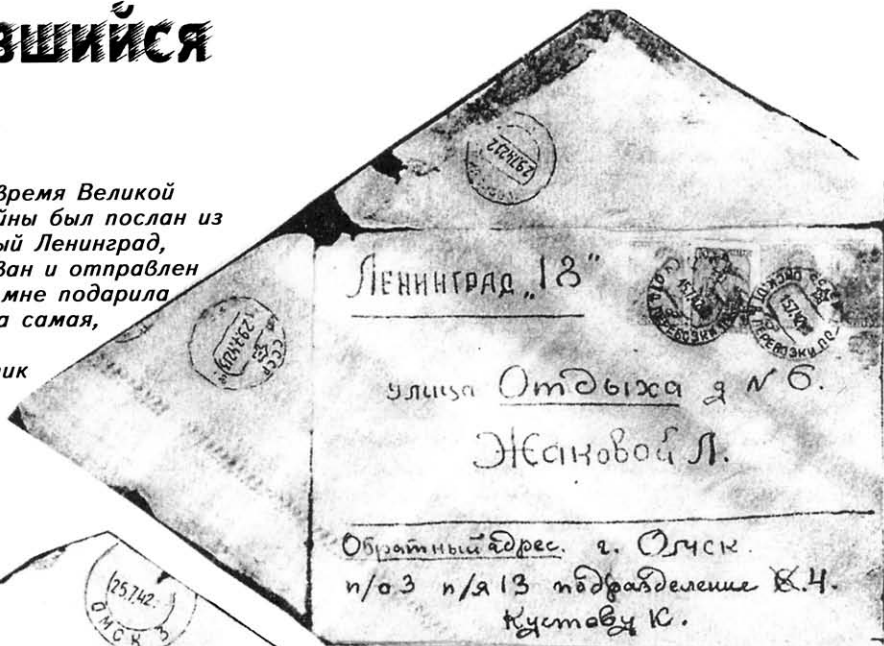 вшийся
время Великой
йны был послан из
ый Ленинград,
ван и отправлен
мне подарила
а самая,
ик
Ленинград „18"
улица Отдыха д № 6.
Жаковой Л.
Обратный адрес. г. Омск.
п/о 3 п/я 13 подразделение 4.
Кустову К.
25.7.42
ОМСК 3
СССР